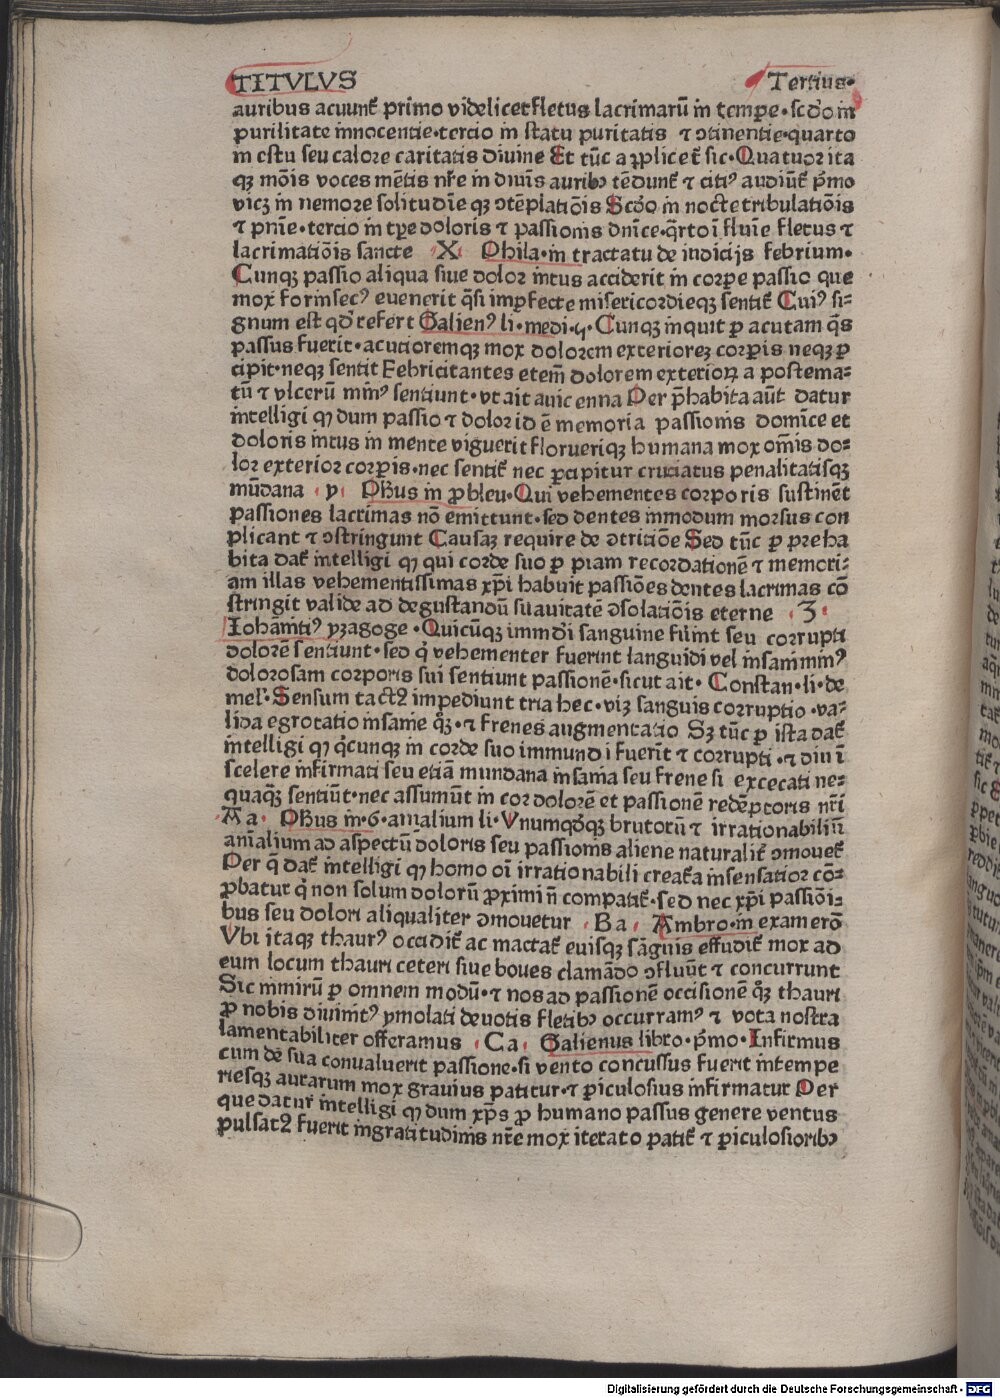 TITVLVS Tertius·
auribus acuunt᷒ primo videlicet fletus lacrimarū in tempe·scd̄o in
purilitate innocentie·tercio in statu puritatis ⁊ ↄtinentie·quarto
in estu seu calore caritatis diuine Et tūc applicet᷒ sic·Quatuor ita
qꝫ mōis voces mētis nr̄e in diuīs aurib᷒ tēdunt᷒ ⁊ citi᷒ audiūt᷒ p̄mo
vicꝫ in nemore solitudīe qꝫ ↄtēplatiōis Scd̄o in nocte tribulatiōis
⁊ pnīe·tercio in tpr̄e doloris ⁊ passionis dnīce·q̄rto ī fluuīe fletus ⁊
lacrimatiōis sancte · X · Phila·in tractatu de indicijs febrium·
Cunqꝫ passio aliqua siue dolor intus acciderit in corꝑe passio que
mox forinsec᷒ euenerit q̄si imꝑfecte misericordieqꝫ sentit᷒ Cui᷒ si⸗
gnum est qd̄ refert Galien᷒ li·medi·4·Cunqꝫ inquit ꝑ acutam q̄s
passus fuerit·acutioremqꝫ mox dolorem exterioreꝫ corꝑis neqꝫ ꝑ
cipit·neqꝫ sentit Febricitantes etem̄ dolorem exteriorꝝ a postema⸗
tū ⁊ vlcerū min᷒ sentiunt·vt ait auicenna Per p̄habita aūt datur
intelligi ꝙ dum passio ⁊ dolor id ē memoria passionis domīce et
doloris intus in mente viguerit florueriqꝫ humana mox om̄is do⸗
lor exterior corꝑis·nec sentit᷒ nec ꝑcipitur cruciatus penalitatisqꝫ
mūdana · y · Phus in ꝓbleu·Qui vehementes corporis sustinēt
passiones lacrimas nō emittunt·sed dentes inmodum morsus con
plicant ⁊ ↄstringunt Causaꝫ require de ↄtritiōe Sed tūc ꝑ preha
bita dat᷒ intelligi ꝙ qui corde suo ꝑ piam recordationē ⁊ memori⸗
am illas vehementissimas xp̄i habuit passiōes dentes lacrimas cō
stringit valide ad degustandū suauitatē ↄsolatiōis eterne · Z ·
Iohānti᷒ yzagoge·Quicūqꝫ immūdi sanguine fūint seu corrupti
dolorē sentiunt·sed q̇ vehementer fuerint languidi vel insani min᷒
dolorosam corporis sui sentiunt passionē·sicut ait·Constan·li·de
mel᷒·Sensum tact᷒ impediunt tria hec·viꝫ sanguis corruptio·va⸗
lida egrotatio insanie qꝫ·⁊ frenes augmentatio Sꝫ tūc ꝑ ista dat᷒
intelligi ꝙ q̇cunqꝫ in corde suo immundi fuerīt ⁊ corrupti·⁊ diu ī
scelere infirmati seu etiā mundana insania seu frenesi excecati ne⸗
quaqꝫ sentiūt·nec assumūt in cor dolorē et passionē redēptoris nr̄i
· Aa · Phus in·6·aīalium li·Vnumqd̄qꝫ brutorū ⁊ irrationabiliū
animalium ad aspectū doloris seu passionis aliene naturalit᷒ ↄmouet᷒
Per q̄ dat᷒ intelligi ꝙ homo oī irrationabili creat᷒a insensatior cō⸗
ꝓbatur q̇ non solum dolorū ꝓximi n̄ compatit᷒·sed nec xp̄i passiōi⸗
bus seu dolori aliqualiter ↄmouetur · Ba · Ambro·in examerō
Vbi itaqꝫ thaur᷒ occidit᷒ ac mactat᷒ euisqꝫ sāguis effudit᷒ mox ad
eum locum thauri ceteri siue boues clamādo ↄfluūt ⁊ concurrunt
Sic mirū ꝑ omnem modū·⁊ nos ad passionē occisionē qꝫ thauri
ꝓ nobis diuinit᷒ ymolati deuotis fletib᷒ occurram᷒ ⁊ vota nostra
lamentabiliter offeramus · Ca · Galienus libro·p̄mo·Infirmus
cum dē sua conualuerit passione·si vento concussus fuerit intempe
riesqꝫ aurarum mox grauius patitur·⁊ ꝑiculosius infirmatur Per
que datur intelligi ꝙ dum xp̄s ꝓ humano passus genere ventus
pulsat᷒ fuerit ingratitudinis nr̄e mox iterato patit᷒ ⁊ ꝑiculosiorib᷒
Digitalisierung gefördert durch die Deutsche Forschungsgemeinschaft - DFG